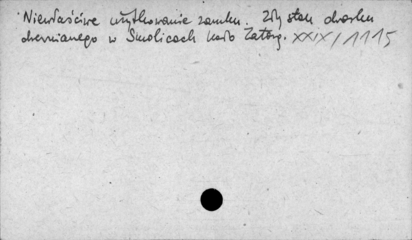 Niewłaściwe użytkowanie zamku. Zły stan dworku
drewnianego w Smolicach koło Zatora. XXIX/1115